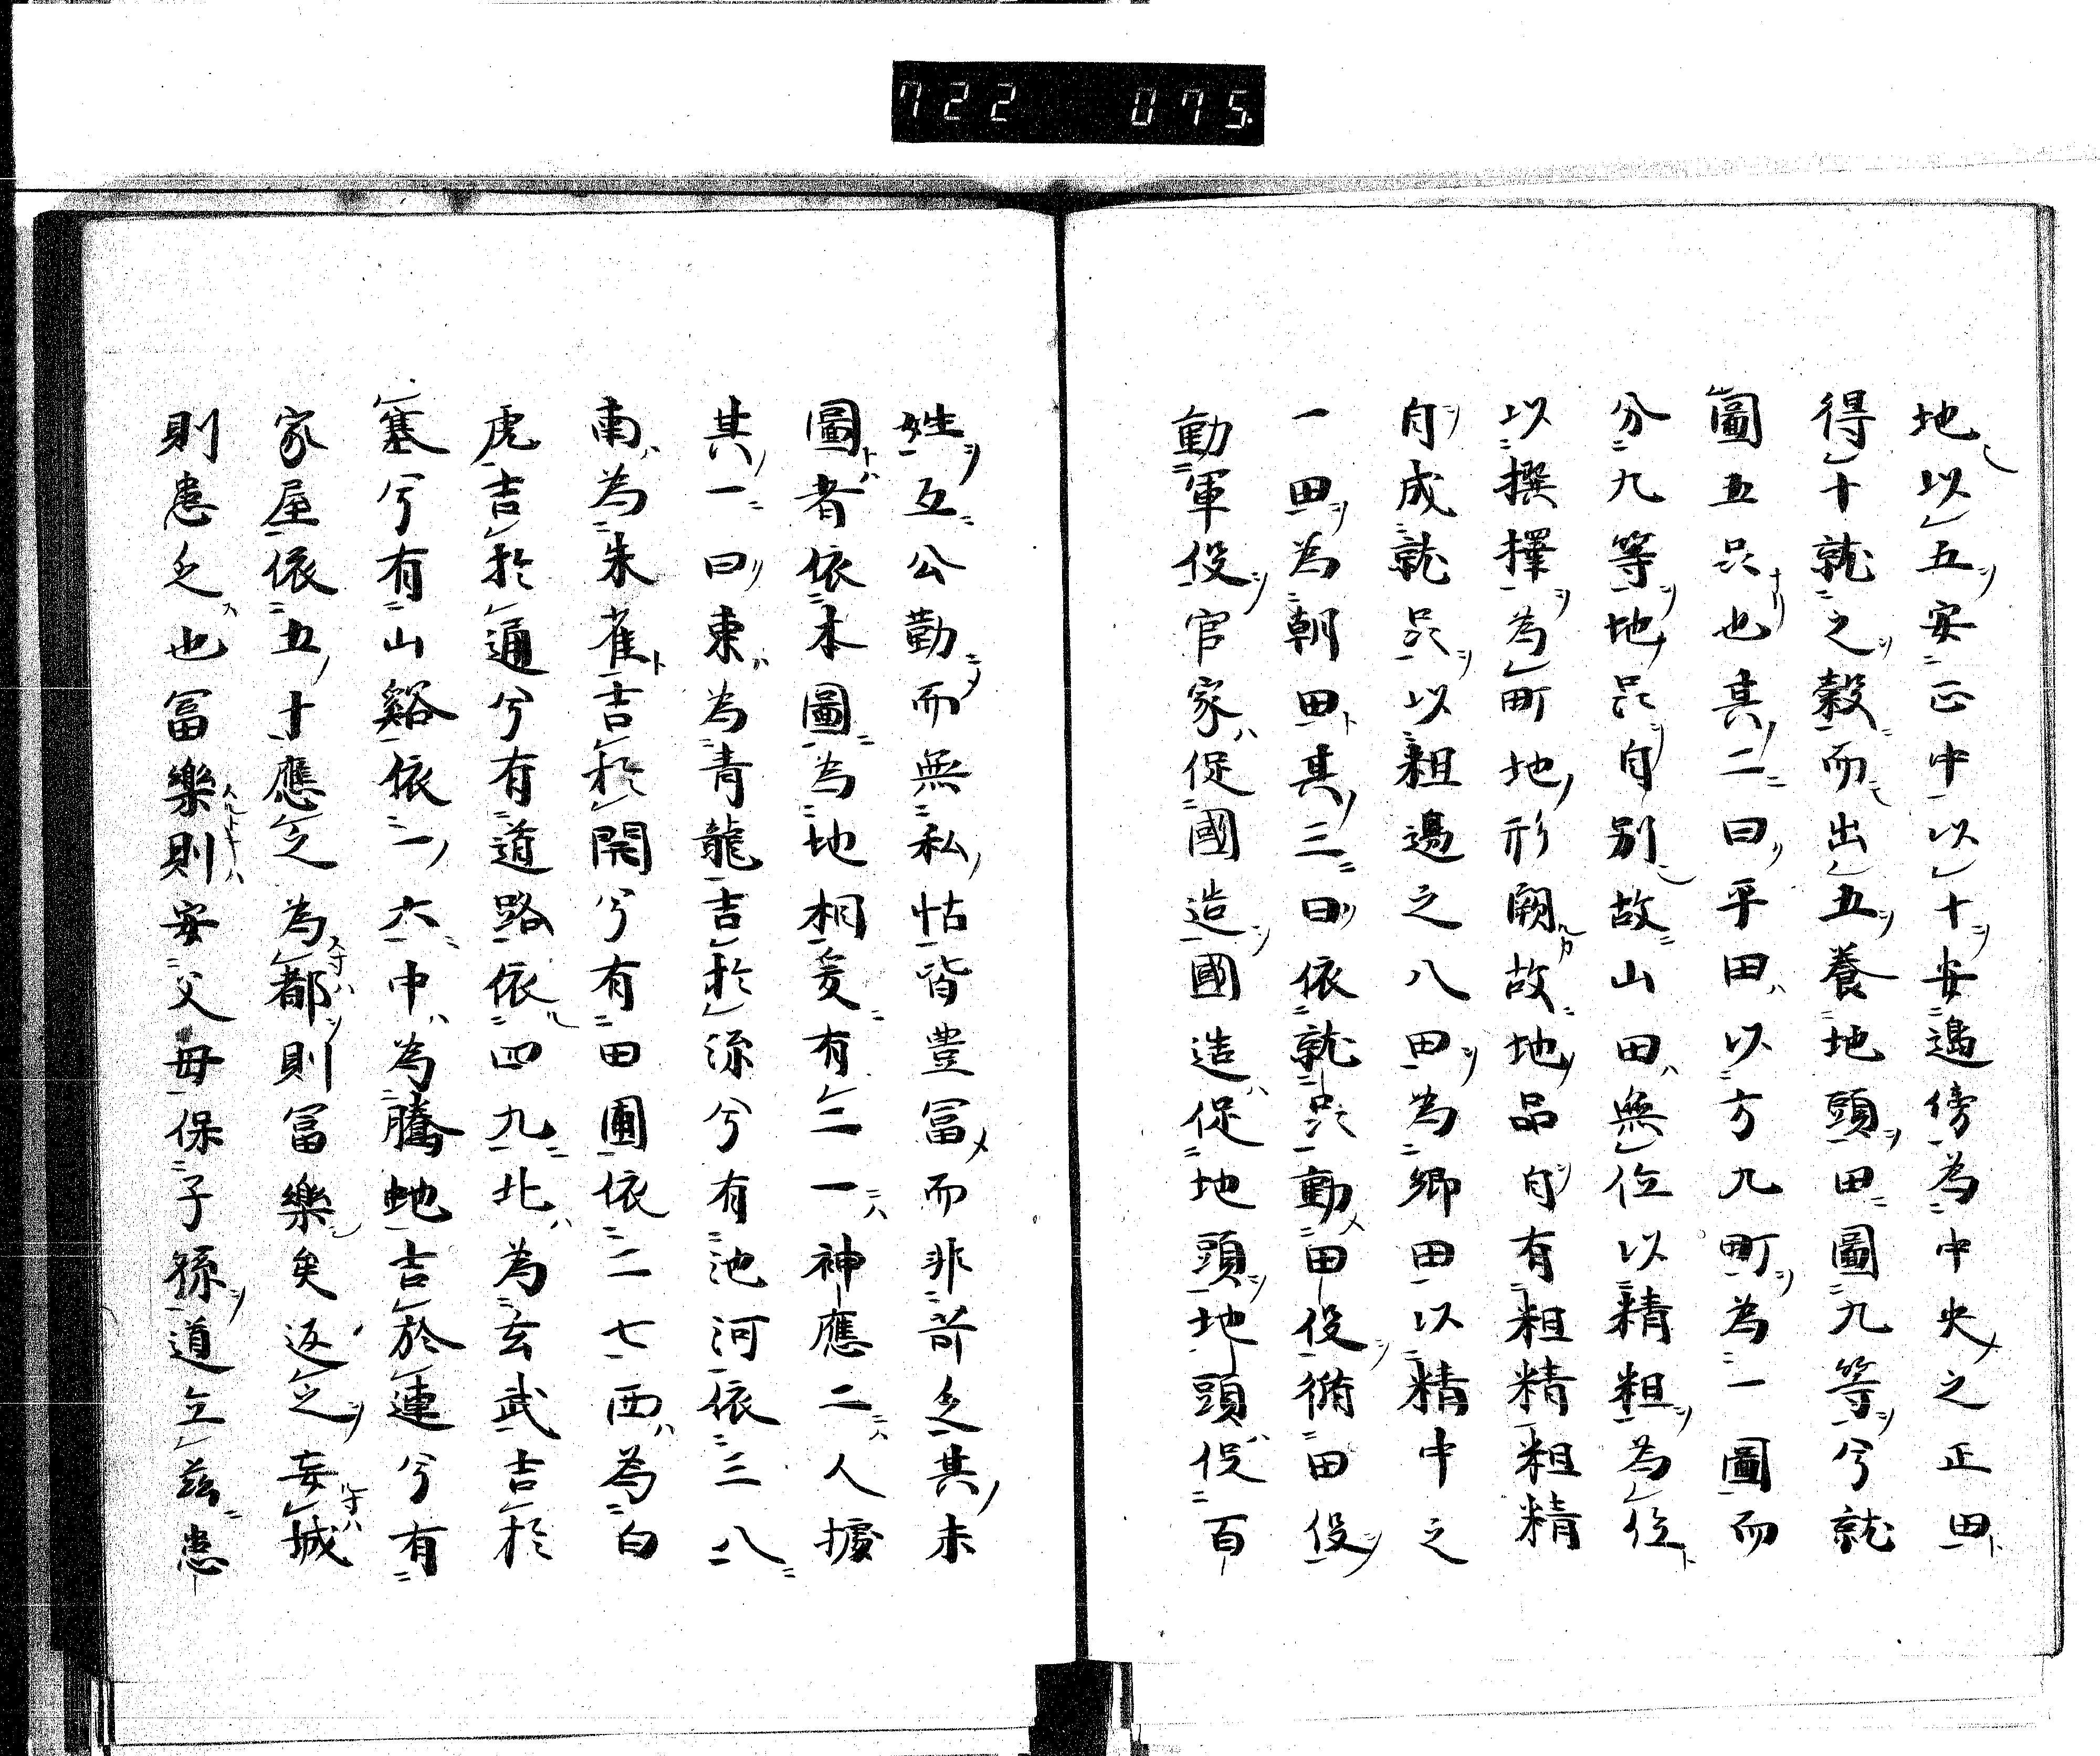 722 075
地以五安正中以十安邉傍為中央之正田
得十就之穀而出五養地頭田圖九等兮就
圖五品也其二曰平田以方九町為一圖而
分九等地品自別故山田無位以精粗為位
以撰擇為町地形闕故地品自有粗精粗精
自成就品以粗邉之八田為郷田以精中之
一田為朝田其三曰依就品動田役脩田役
動軍役官家促國造國造促地頭地頭促百
姓互公勤而無私怙皆豊冨而非苛乏其未
圖者依本圖為地相爰有三一神應二人據
其一曰東為青龍吉於流兮有池河依三八
南為朱雀吉於開兮有田圃依二七西為白
虎吉於通兮有道路依四九北為玄武吉於
塞兮有山谿依一六中為騰虵吉於連兮有
家屋依五十應之為都則冨樂矣返之妄城
則患乏也冨樂則安父母保子孫道立茲患